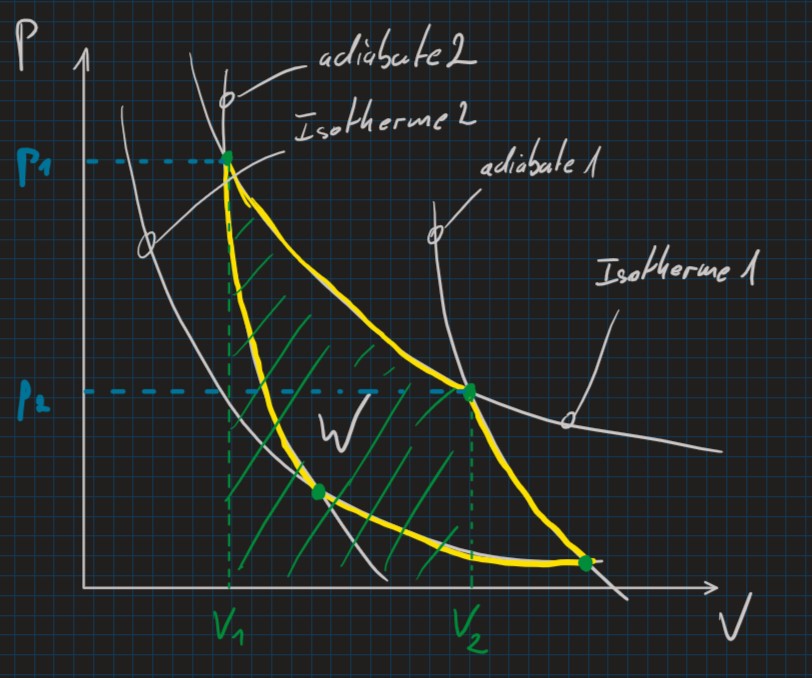 P
adiabate 2
Isotherme 2
P1
adiabate 1
Isotherme 1
P2
W
V1
V2
V